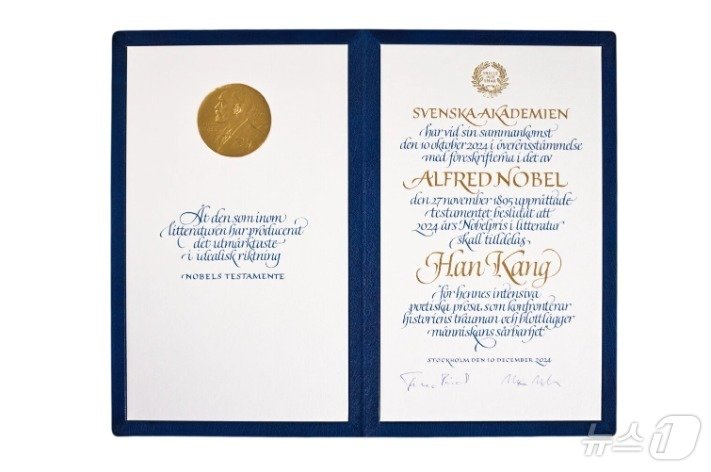 Åt den som inom
litteraturen har producerat
det utmärktaste
i idealisk riktning
NOBELS TESTAMENTE
SVENSKA AKADEMIEN
har vid sin sammankomst
den 10 oktober 2024 i överensstämmelse
med föreskrifterna i det av
ALFRED NOBEL
den 27 november 1895 upprättade
testamentet beslutat att
2024 års Nobelpris i litteratur
skall tilldelas
Han Kang
för hennes intensiva
poetiska prosa som konfronterar
historiens trauman och blottlägger
människans sårbarhet
STOCKHOLM DEN 10 DECEMBER 2024
뉴스1